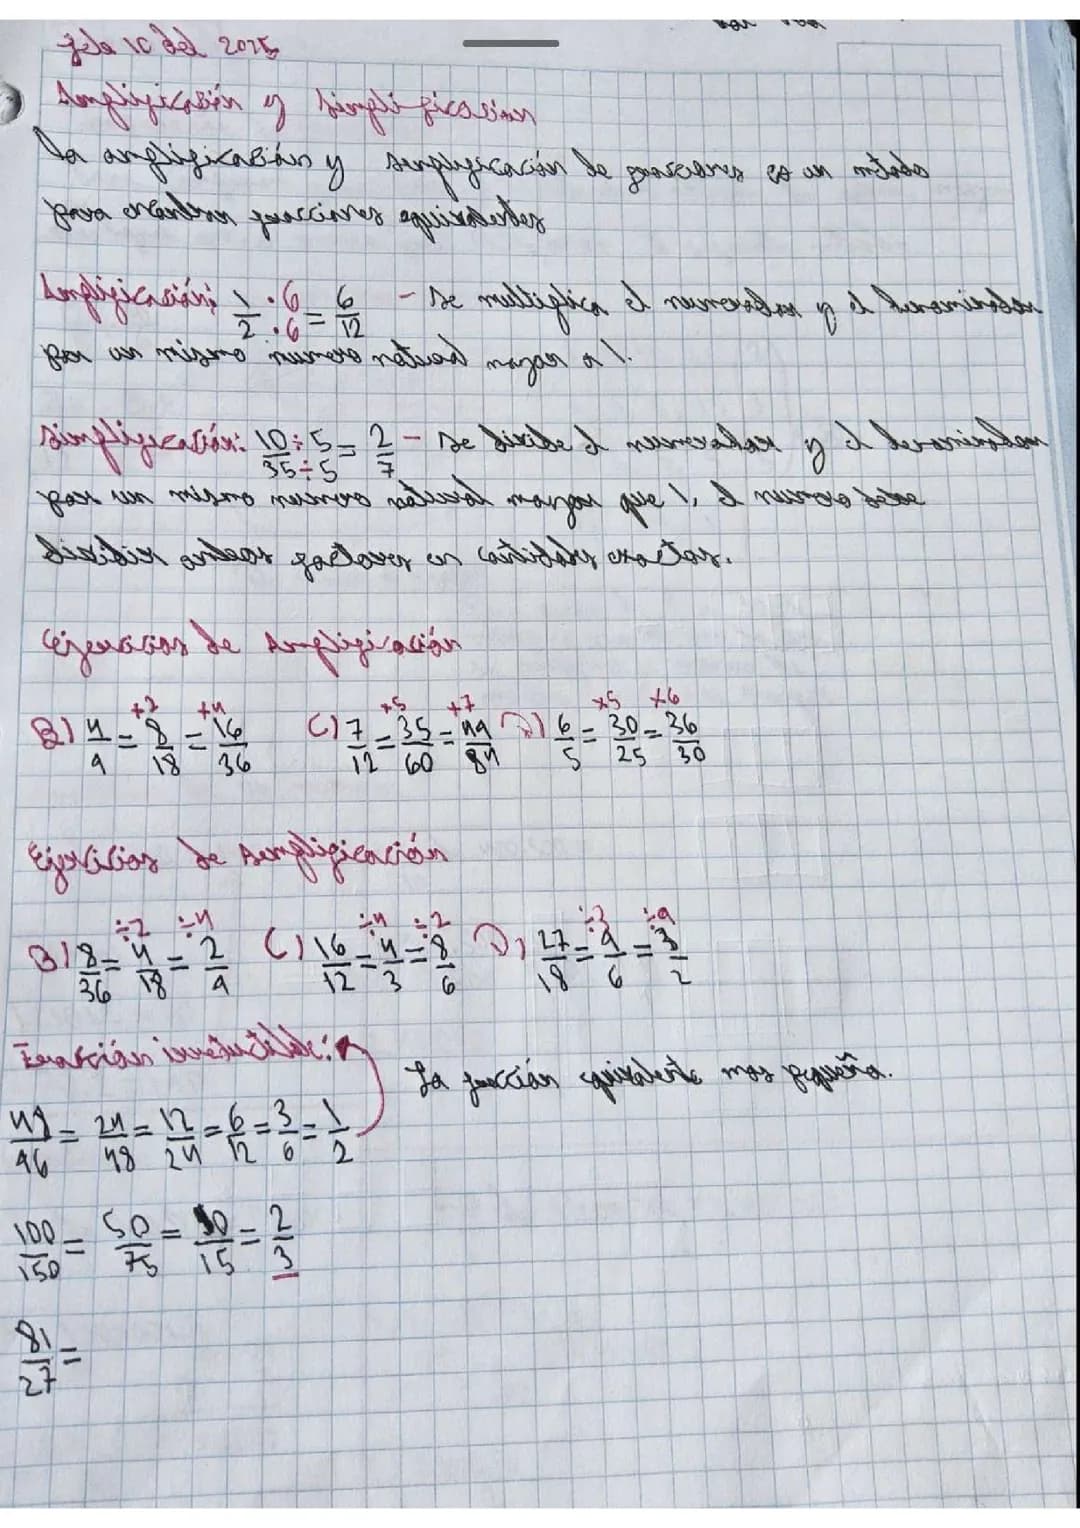 10 del 2025
Amplificación y Simplificación
La amplificación y simplificación de fracciones es un método
para encontrar fracciones equivalentes
Amplificación: 1/2 · 6/6 = 6/12 - Se multiplica el numerador y el denominador
por un mismo numero natural mayor a 1.
Simplificación: 10/35 ÷ 5/5 = 2/7 - Se divide el numerador y el denominador
por un mismo numero natural mayor que 1, el numero debe
dividir ambos factores en cantidades exactas.
Ejercicios de Amplificación
×2 ×4 ×5 ×7 ×5 ×6
B) 4/9 = 8/18 = 16/36 C) 7/12 = 35/60 = 49/84 D) 6/5 = 30/25 = 36/30
Ejercicios de simplificación
÷2 ÷4 ÷4 ÷2 ÷3 ÷9
B) 8/36 = 4/18 = 2/9 C) 16/12 = 4/3 = 8/6 D) 27/18 = 9/6 = 3/2
Fracción irreductible:
La fracción equivalente mas pequeña.
48/96 = 24/48 = 12/24 = 6/12 = 3/6 = 1/2
100/150 = 50/75 = 10/15 = 2/3
81/27 =